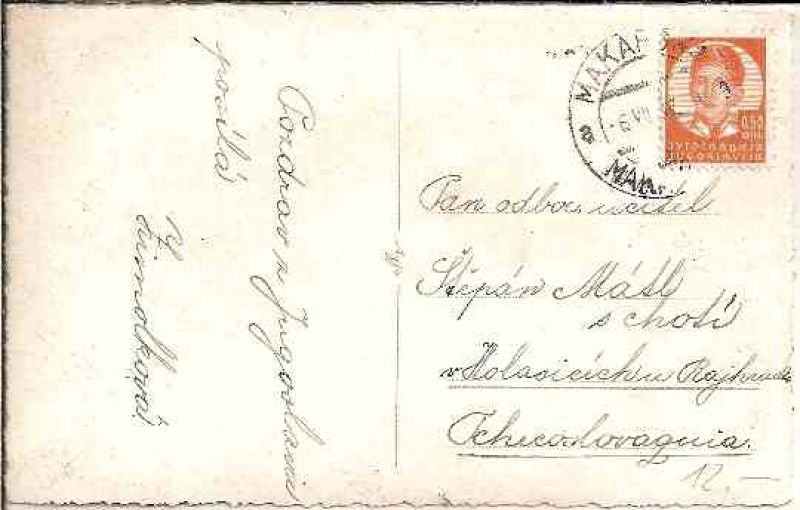 Pozdrav z Jugoslavie
posílá
MAKAR
VII
0.50
DIN.
ЈУГОСЛАВИЈА
JUGOSLAVIJA
Pan odbor. učitel
Štěpán Mátl
s chotí
v Holasicích u Rajhradu
Tchecoslovaquia.
12,—